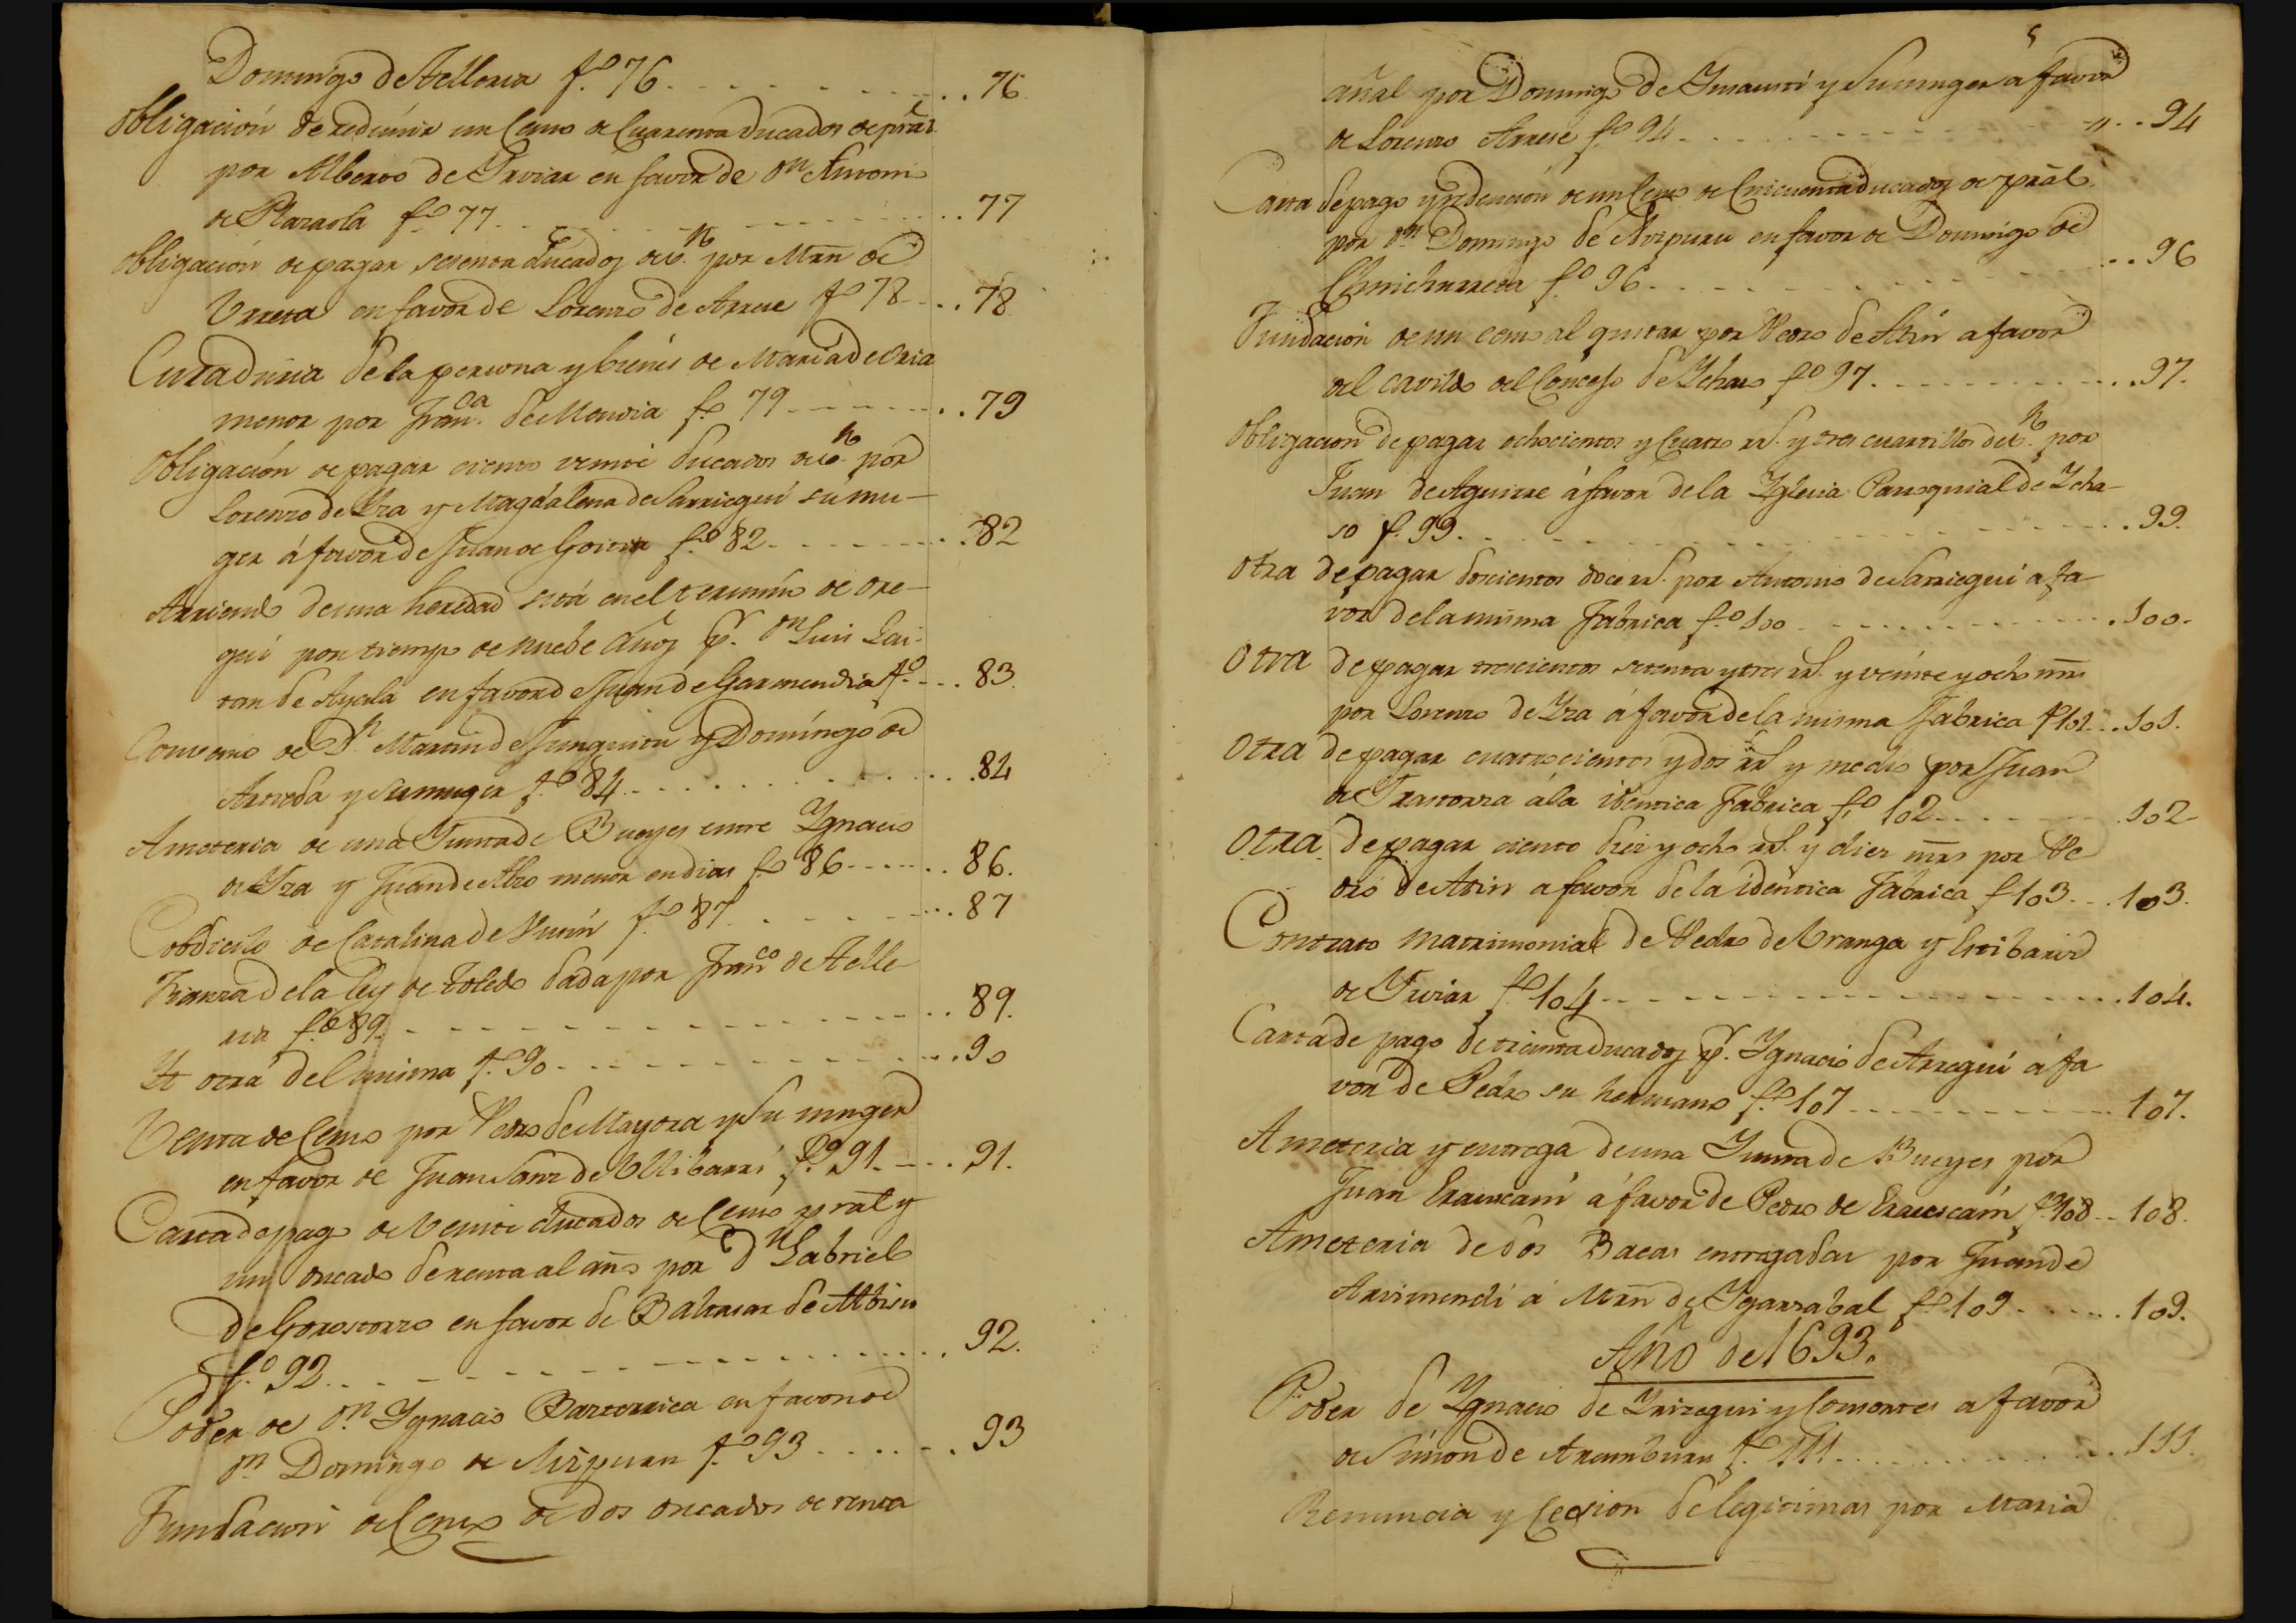 Domingo de Telleria f.º 76 . . . . . . . . . 76
Obligación de redimir un Censo de Cuarenta Ducados de prãl
por Alberto de Yrviar en favor de Dn Antonio
de Plazaola f.º 77 . . . . . . . . . 77
Obligación de pagar setenta Ducados de vn. por Mrñ de
Urreta en favor de Lorenzo de Arrese fº 78 . . . 78
Curaduria de la persona y bienes de Maria de Oria
menor por Franca. de Mendia f.º 79 . . . . . . 79
Obligación de pagar ciento veinte Ducados de vn. por
Lorenzo de Yza y Magdalena de Sarriegui su mu-
ger á favor de Juan de Goiena f.º 82 . . . . . . 82
Arriendo de una heredad sita en el termino de Ore-
gui por tiempo de nuebe años pr. Dn Luis Gai-
tan de Ayala en favor de Juan de Garmendia fº . . . 83
Convenio de Dn Martin de Junguitu y Domingo de
Arteeda y su muger f.º 84 . . . . . . . . . 84
Ameteria de una Yunta de Bueyes entre Ygnacio
de Yza y Juan de Alzo menor en dias f.º 86 . . . . . 86.
Cobdicilo de Catalina de f.º 87 . . . . . . 87
Fianza de la ley de Toledo dada por Franco de Telle-
ria f.º 89 . . . . . . . . . 89.
Yt otra del misma f.º 90 . . . . . . . . . 90
Venta de Censo por Pedro de Mayora y su muger
en favor de Juan Sanz de Ullibarri f.º 91. . . . 91.
Carta de pago de Veinte ducados de Censo pral y
un Ducado de renta al año por Dn Gabriel
de Gorostorzo en favor de Baltasar de Albisu
f.º 92 . . . . . . . . . 92.
Poder de Dn Ygnacio Barrenica en favor de
Dn Domingo de Aizpuru f.º 93 . . . . . . 93
Fundación de Censo de dos Ducados de renta
5
añal por Domingo de Ymausti y su muger á favor
de Lorenzo Arrese f.º 94 . . . . . . . . . 94
Carta de pago y redención de un Censo de Cincuenta Ducados de prãl
por Dn Domingo de Aizpuru en favor de Domingo de
Chinchurreta f.º 96 . . . . . . . . . 96
Fundación de un censo al quitar por Pedro de Atin a favor
del Cavildo del Concejo de Ychaso f.º 97 . . . . . . . . . 97.
Obligacion de pagar ochocientos y Cuatro rs. y tres cuartillos de vn. por
Juan de Aguirre á favor de la Yglesia Parroquial de Ycha-
so f. 99. . . . . . . . . . 99.
Otra de pagar doscientos doce rs. por Antonio de Sarriegui á fa-
vor de la misma Fabrica f.º 100 . . . . . . . . . 100.
Otra de pagar trescientos setenta y tres rs. y veinte y ocho mrs
por Lorenzo de Yza á favor de la misma Fabrica fº 101 . . . 101.
Otra de pagar cuatrocientos y dos rs y medio por Juan
de Yrastorza á la identica Fabrica f.º 102 . . . . . . 102
Otra de pagar ciento diez y ocho rs. y diez mrs por Pe-
dro de Atin a favor de la identica Fabrica f. 103 . . . 103.
Contrato matrimonial de Pedro de Uranga y Estibariz
de Yrviar f.º 104 . . . . . . . . . 104.
Carta de pago de treinta ducados pr. Ygnacio de Arregui á fa
vor de Pedro su hermano f.º 107 . . . . . . . . . 107.
Ameteria y entrega de una Yunta de Bueyes por
Juan Erauscain á favor de Pedro de Erauscain f.º 108 . . 108.
Ameteria de dos Bacas entregadas por Juan de
Arismendi á Mrñ de Ygarzabal f.º 109 . . . . . . 109.
Año de 1693.
Poder de Ygnacio de Yrizegui y Consortes a favor
de Simon de Aramburu f.º 111 . . . . . . . . . 111.
Renuncia y Cesion de legitimas por Maria